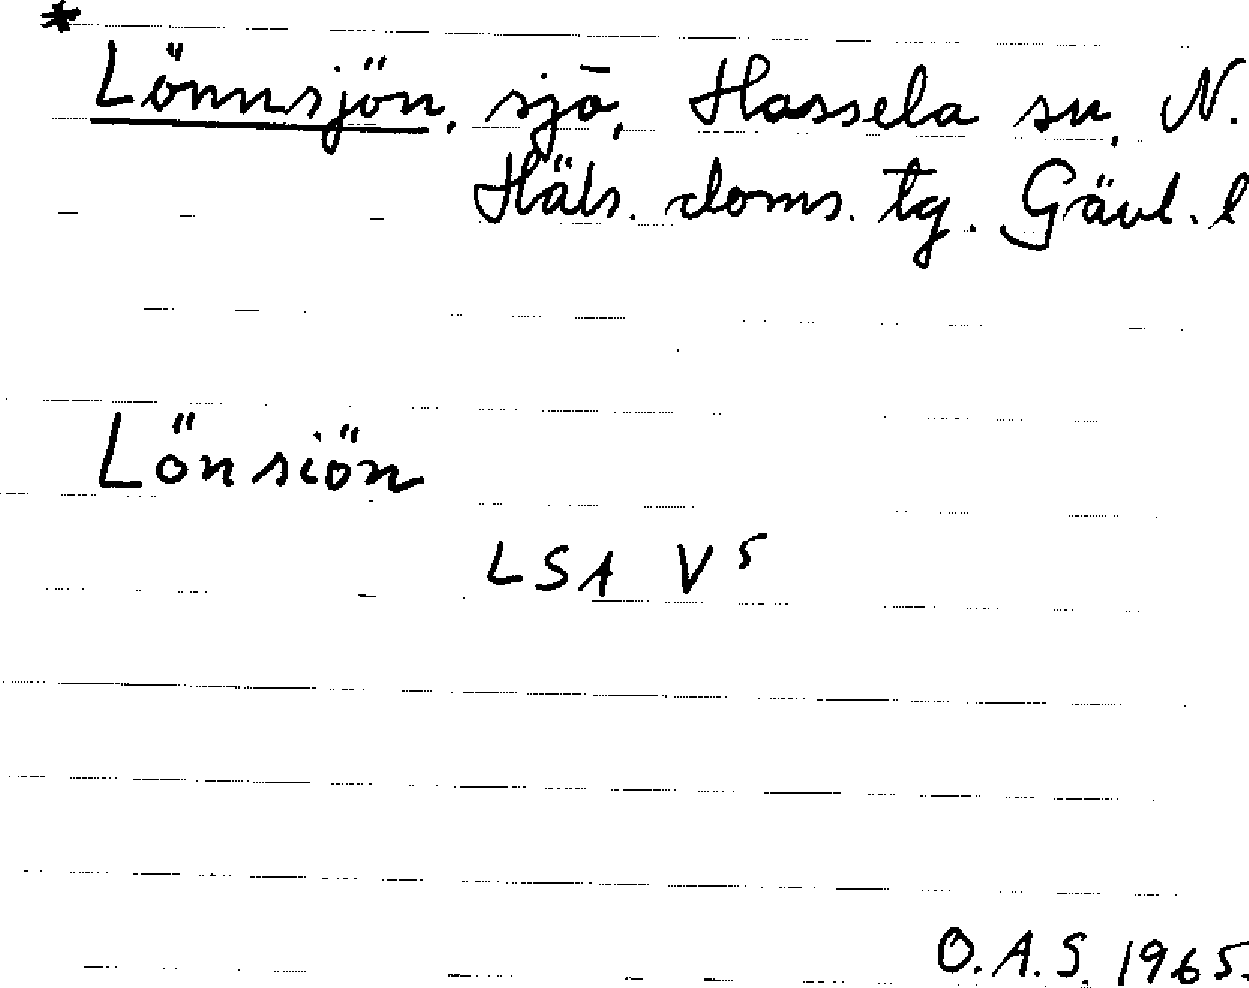 *
Lönnsjön, sjö, Hassela sn, N.
Häls. doms. tg. Gävl. l
Lönsiön
LSA V5
O.A.S. 1965.